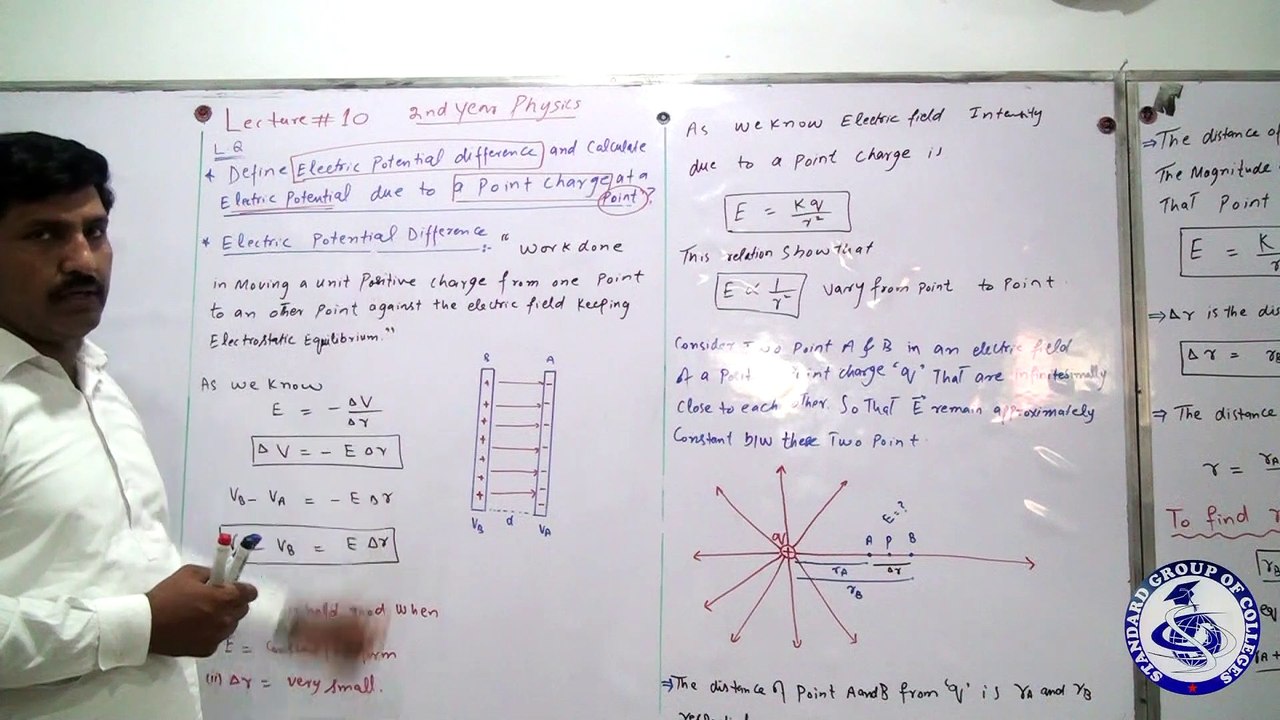 Lecture # 10 2nd Year Physics
L.Q
* Define Electric Potential difference and Calculate
Electric Potential due to a Point Charge at a
Point ?
* Electric Potential Difference :- " Work done
in Moving a unit Positive charge from one Point
to an other Point against the electric field Keeping
Electrostatic Equilibrium."
As we Know
E = - ΔV/Δr
ΔV = - E Δr
V_B - V_A = - E Δr
V_B = E Δr
hold good when
E =
(ii) Δr = very small.
B A
+ + + + + + +
- - - - - - -
V_B d V_A
As we Know Electric field Intensity
due to a Point Charge is
E = Kq/r²
This relation Show that
E ∝ 1/r² Vary from Point to Point.
Consider Two Point A & B in an electric field
of a Point charge 'q' That are infinitesmally
Close to each other. So That E remain approximately
Constant b/w these Two Point.
q
+
E = ?
A P B
r_A Δr
r_B
⇒ The distance of Point A and B from 'q' is r_A and r_B
⇒ The distance of
The Magnitude
That Point
E = K
⇒ Δr is the dis
Δr = r_B
⇒ The distance
r = r_A
To find
r_B
eq
r_A +
STANDARD GROUP OF COLLEGES